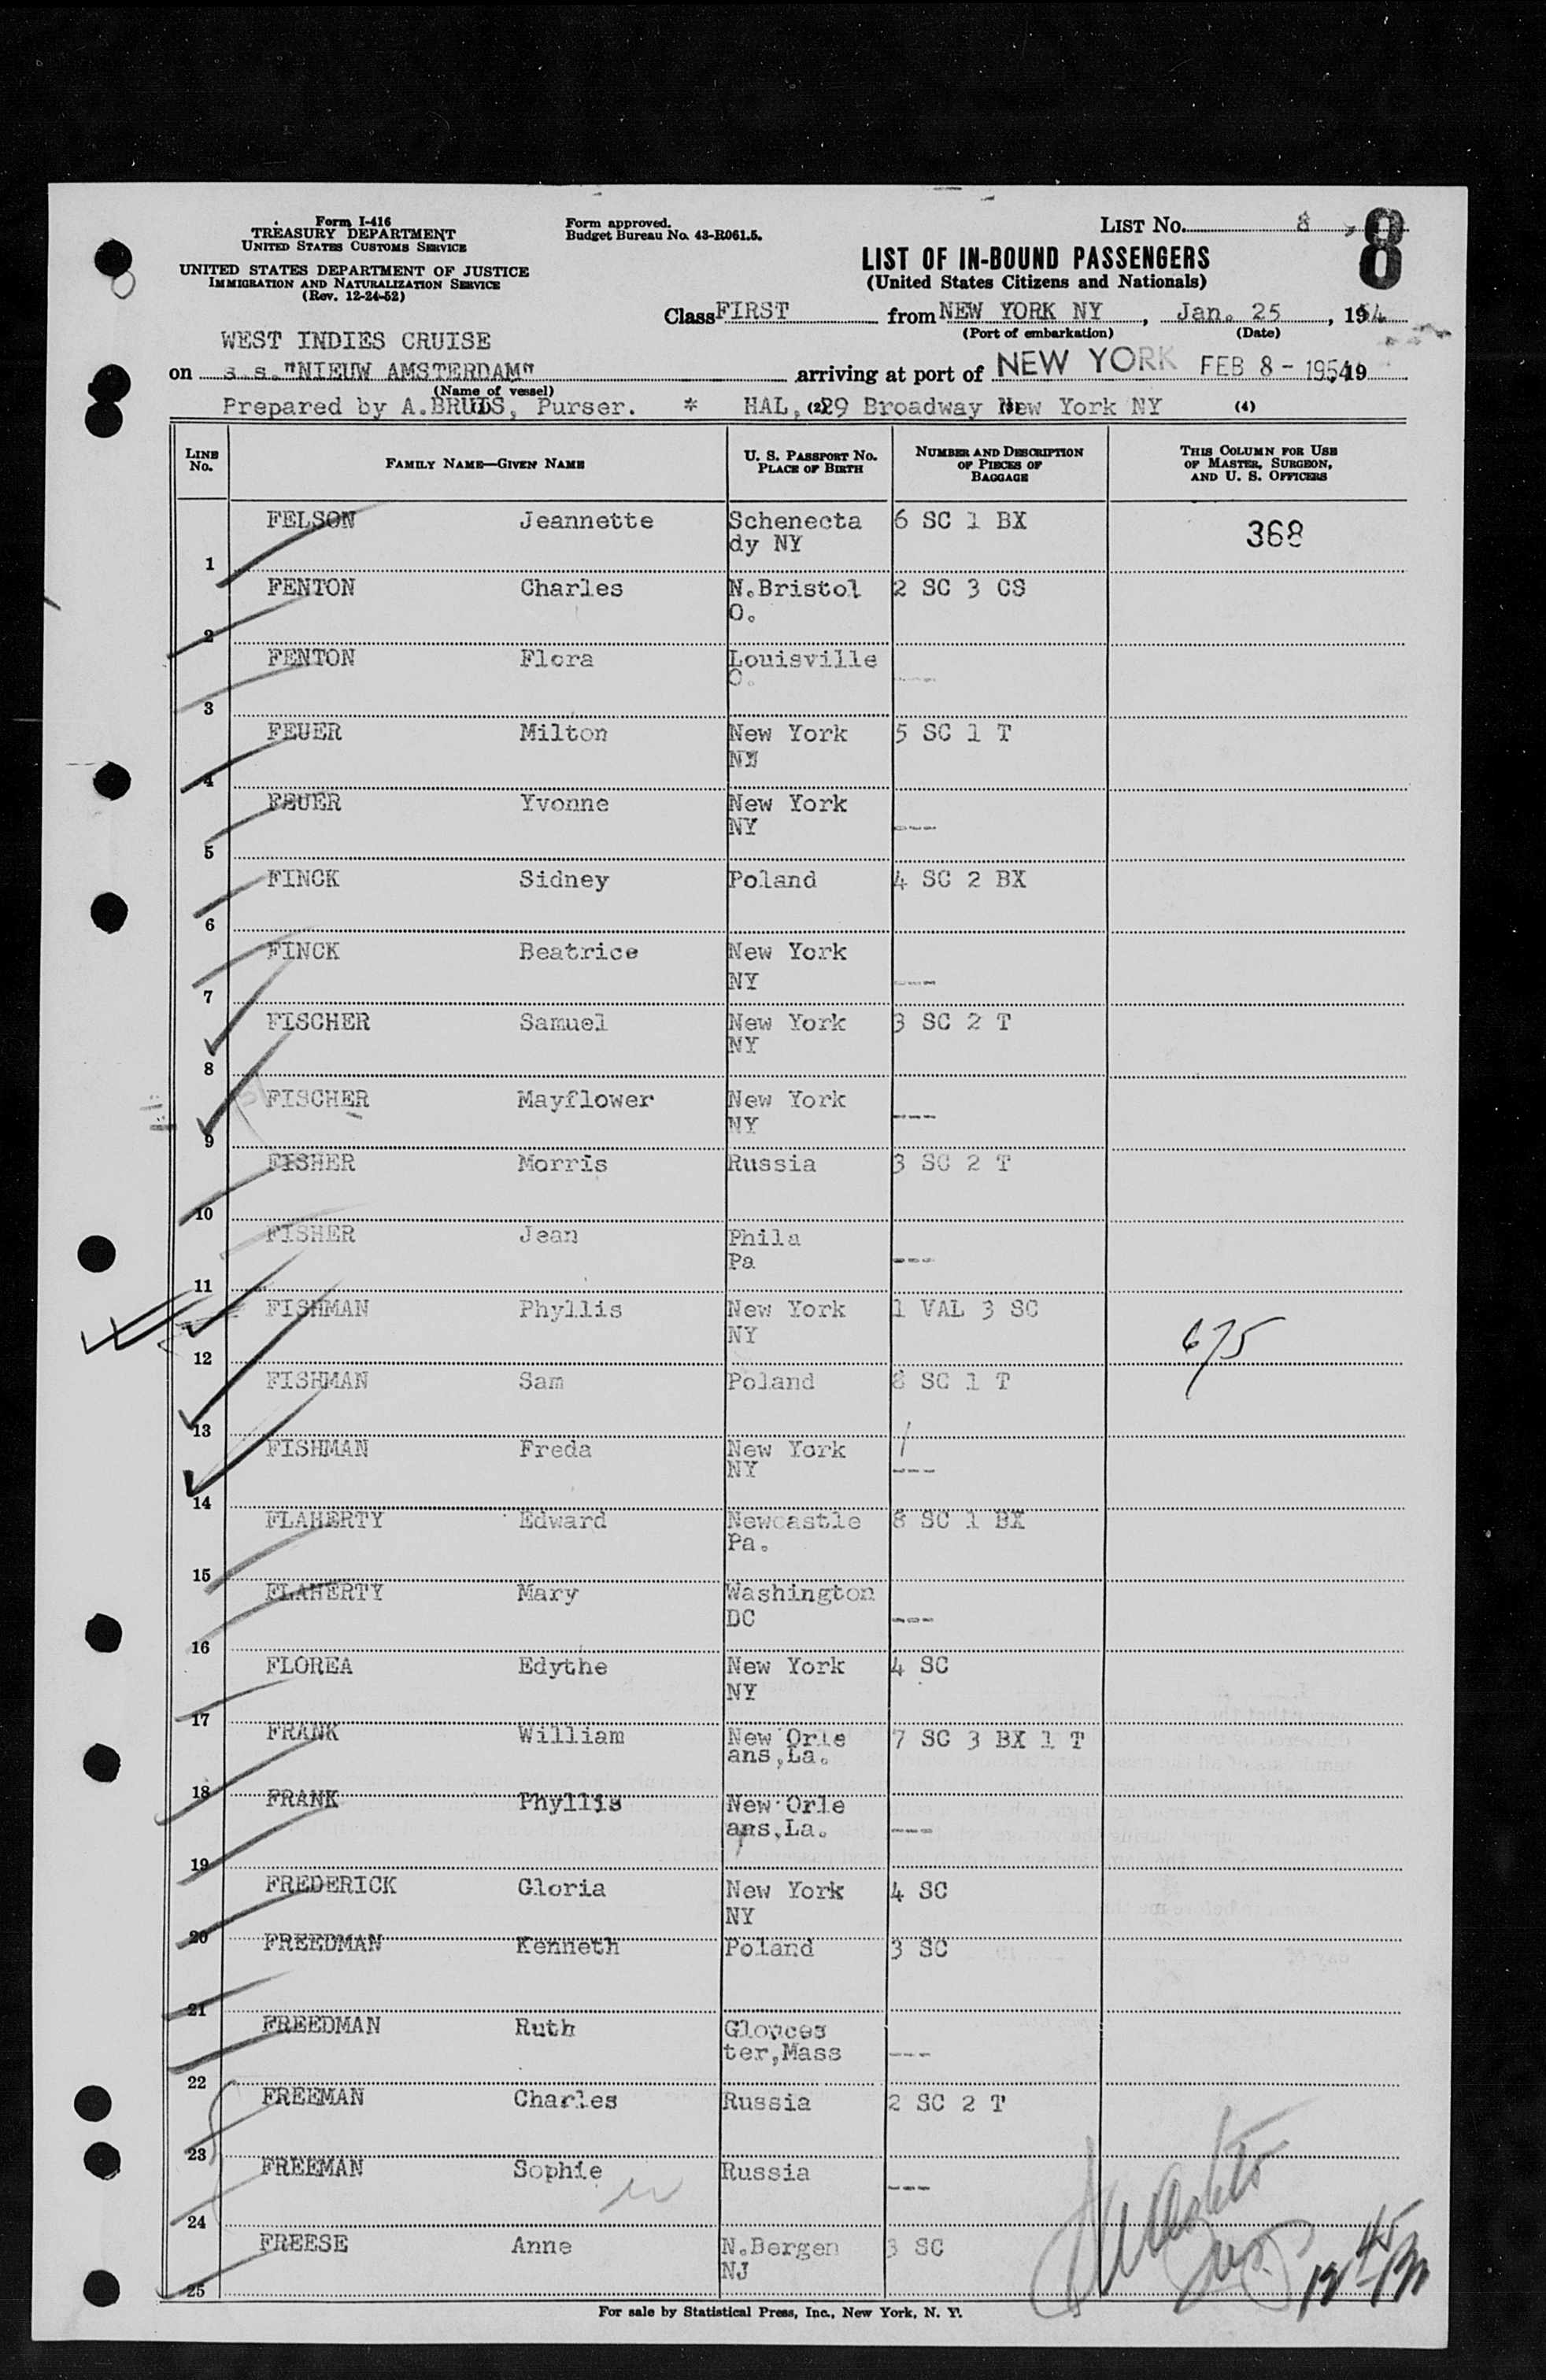 Form I-416
TREASURY DEPARTMENT
UNITED STATES CUSTOMS SERVICE
UNITED STATES DEPARTMENT OF JUSTICE
IMMIGRATION AND NATURALIZATION SERVICE
(Rev. 12-24-52)
Form approved.
Budget Bureau No. 43-R061.5.
LIST NO. 8
8
LIST OF IN-BOUND PASSENGERS
(United States Citizens and Nationals)
Class FIRST from NEW YORK NY, Jan. 25, 1954
(Port of embarkation) (Date)
WEST INDIES CRUISE
on s.s. "NIEUW AMSTERDAM" arriving at port of NEW YORK FEB 8 - 1954 19
(Name of vessel)
Prepared by A.BRUIDS, Purser. * HAL, 29 Broadway New York NY (4)
LINE No. FAMILY NAME—GIVEN NAME U. S. PASSPORT NO. PLACE OF BIRTH NUMBER AND DESCRIPTION OF PIECES OF BAGGAGE THIS COLUMN FOR USE OF MASTER, SURGEON, AND U. S. OFFICERS
1 FELSON Jeannette Schenecta dy NY 6 SC 1 BX 368
2 FENTON Charles N.Bristol O. 2 SC 3 CS
3 FENTON Flora Louisville O. ----
4 FEUER Milton New York NY 5 SC 1 T
5 FEUER Yvonne New York NY ----
6 FINCK Sidney Poland 4 SC 2 BX
7 FINCK Beatrice New York NY ----
8 FISCHER Samuel New York NY 3 SC 2 T
9 FISCHER Mayflower New York NY ----
10 FISHER Morris Russia 3 SC 2 T
11 FISHER Jean Phila Pa ----
12 FISHMAN Phyllis New York NY 1 VAL 3 SC 675
13 FISHMAN Sam Poland 8 SC 1 T
14 FISHMAN Freda New York NY ----
15 FLAHERTY Edward Newcastle Pa. 8 SC 1 BX
16 FLAHERTY Mary Washington DC ----
17 FLOREA Edythe New York NY 4 SC
18 FRANK William New Orle ans,La. 7 SC 3 BX 1 T
19 FRANK Phyllis New Orle ans,La. ----
20 FREDERICK Gloria New York NY 4 SC
21 FREEDMAN Kenneth Poland 3 SC
22 FREEDMAN Ruth Glouces ter,Mass ----
23 FREEMAN Charles Russia 2 SC 2 T
24 FREEMAN Sophie Russia ----
25 FREESE Anne N.Bergen NJ 3 SC
For sale by Statistical Press, Inc., New York, N. Y.